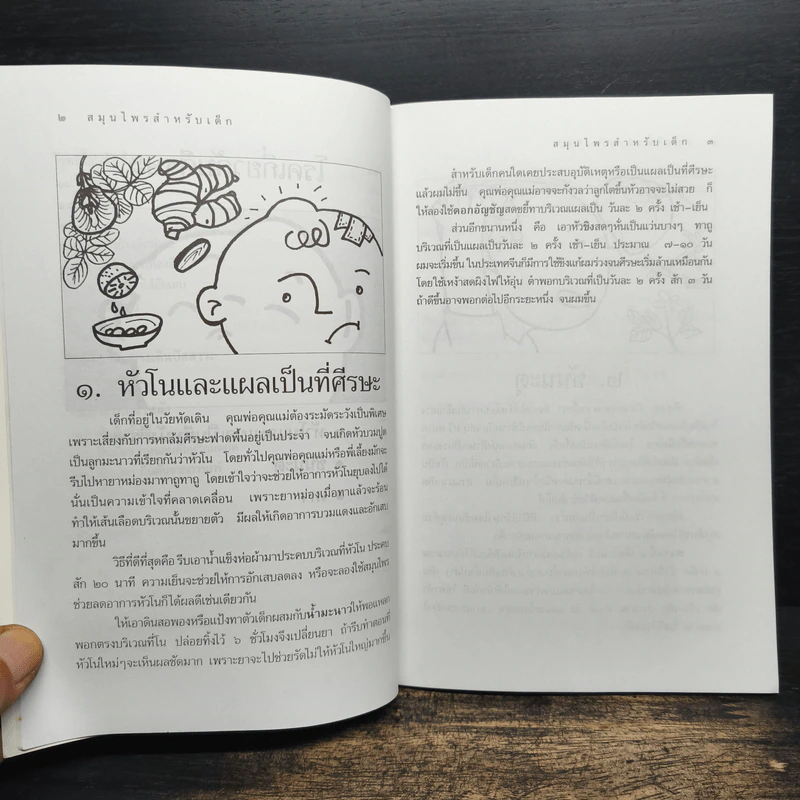 ๒ สมุนไพรสำหรับเด็ก
๑. หัวโนและแผลเป็นที่ศีรษะ
เด็กที่อยู่ในวัยหัดเดิน คุณพ่อคุณแม่ต้องระมัดระวังเป็นพิเศษ
เพราะเสี่ยงกับการหกล้มศีรษะฟาดพื้นอยู่เป็นประจำ จนเกิดหัวบวมปูด
เป็นลูกมะนาวที่เรียกกันว่าหัวโน โดยทั่วไปคุณพ่อคุณแม่หรือพี่เลี้ยงมักจะ
รีบไปหายาหม่องมาทาถูทาถู โดยเข้าใจว่าจะช่วยให้อาการหัวโนยุบลงไปได้
นั่นเป็นความเข้าใจที่คลาดเคลื่อน เพราะยาหม่องเมื่อทาแล้วจะร้อน
ทำให้เส้นเลือดบริเวณนั้นขยายตัว มีผลให้เกิดอาการบวมแดงและอักเสบ
มากขึ้น
วิธีที่ดีที่สุดคือ รีบเอาน้ำแข็งห่อผ้ามาประคบบริเวณที่หัวโน ประคบ
สัก ๒๐ นาที ความเย็นจะช่วยให้การอักเสบลดลง หรือจะลองใช้สมุนไพร
ช่วยลดอาการหัวโนก็ได้ผลดีเช่นเดียวกัน
ให้เอาดินสอพองหรือแป้งทาตัวเด็กผสมกับน้ำมะนาวให้พอแหลก
พอกตรงบริเวณที่โน ปล่อยทิ้งไว้ ๖ ชั่วโมงจึงเปลี่ยนยา ถ้ารีบทำตอนที่
หัวโนใหม่ๆจะเห็นผลชัดมาก เพราะยาจะไปช่วยรัดไม่ให้หัวโนใหญ่มากขึ้น
สมุนไพรสำหรับเด็ก ๓
สำหรับเด็กคนใดเคยประสบอุบัติเหตุหรือเป็นแผลเป็นที่ศีรษะ
แล้วผมไม่ขึ้น คุณพ่อคุณแม่อาจจะกังวลว่าลูกโตขึ้นหัวอาจจะไม่สวย ก็
ให้ลองใช้ดอกอัญชัญสดขยี้ทาบริเวณแผลเป็น วันละ ๒ ครั้ง เช้า-เย็น
ส่วนอีกขนานหนึ่ง คือ เอาหัวขิงสดๆหั่นเป็นแว่นบางๆ ทาถู
บริเวณที่เป็นแผลเป็นวันละ ๒ ครั้ง เช้า-เย็น ประมาณ ๗-๑๐ วัน
ผมจะเริ่มขึ้น ในประเทศจีนก็มีการใช้ขิงแก้ผมร่วงจนศีรษะเริ่มล้านเหมือนกัน
โดยใช้เหง้าสดผิงไฟให้อุ่น ตำพอกบริเวณที่เป็นวันละ ๒ ครั้ง สัก ๓ วัน
ถ้าดีขึ้นอาจพอกต่อไปอีกระยะหนึ่ง จนผมขึ้น